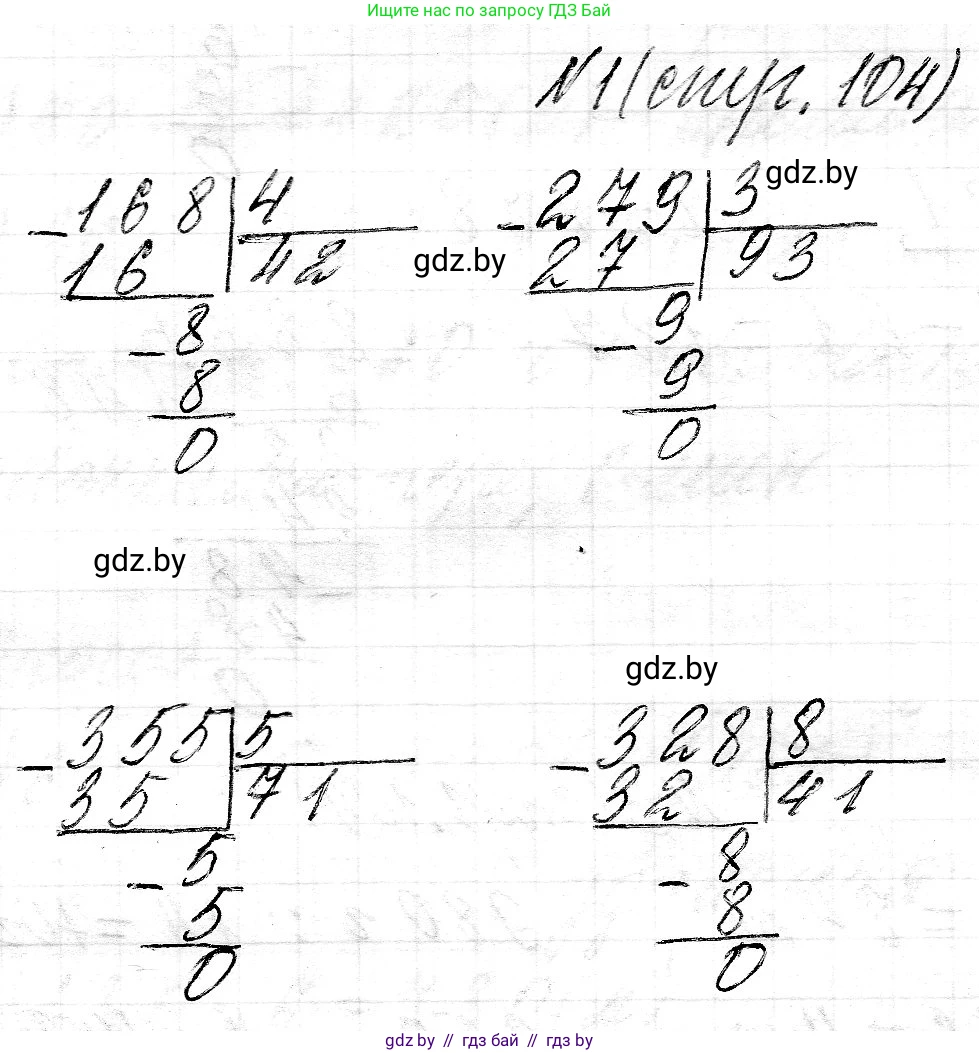 Ищите нас по запросу ГДЗ Бай
№1 (стр. 104)
gdz.by
- 168 | 4
16 | 42
- 8
8
0
gdz.by
- 279 | 3
27 | 93
- 9
9
0
gdz.by
gdz.by
- 355 | 5
35 | 71
- 5
5
0
- 328 | 8
32 | 41
- 8
8
0
gdz.by // гдз бай // гдз by